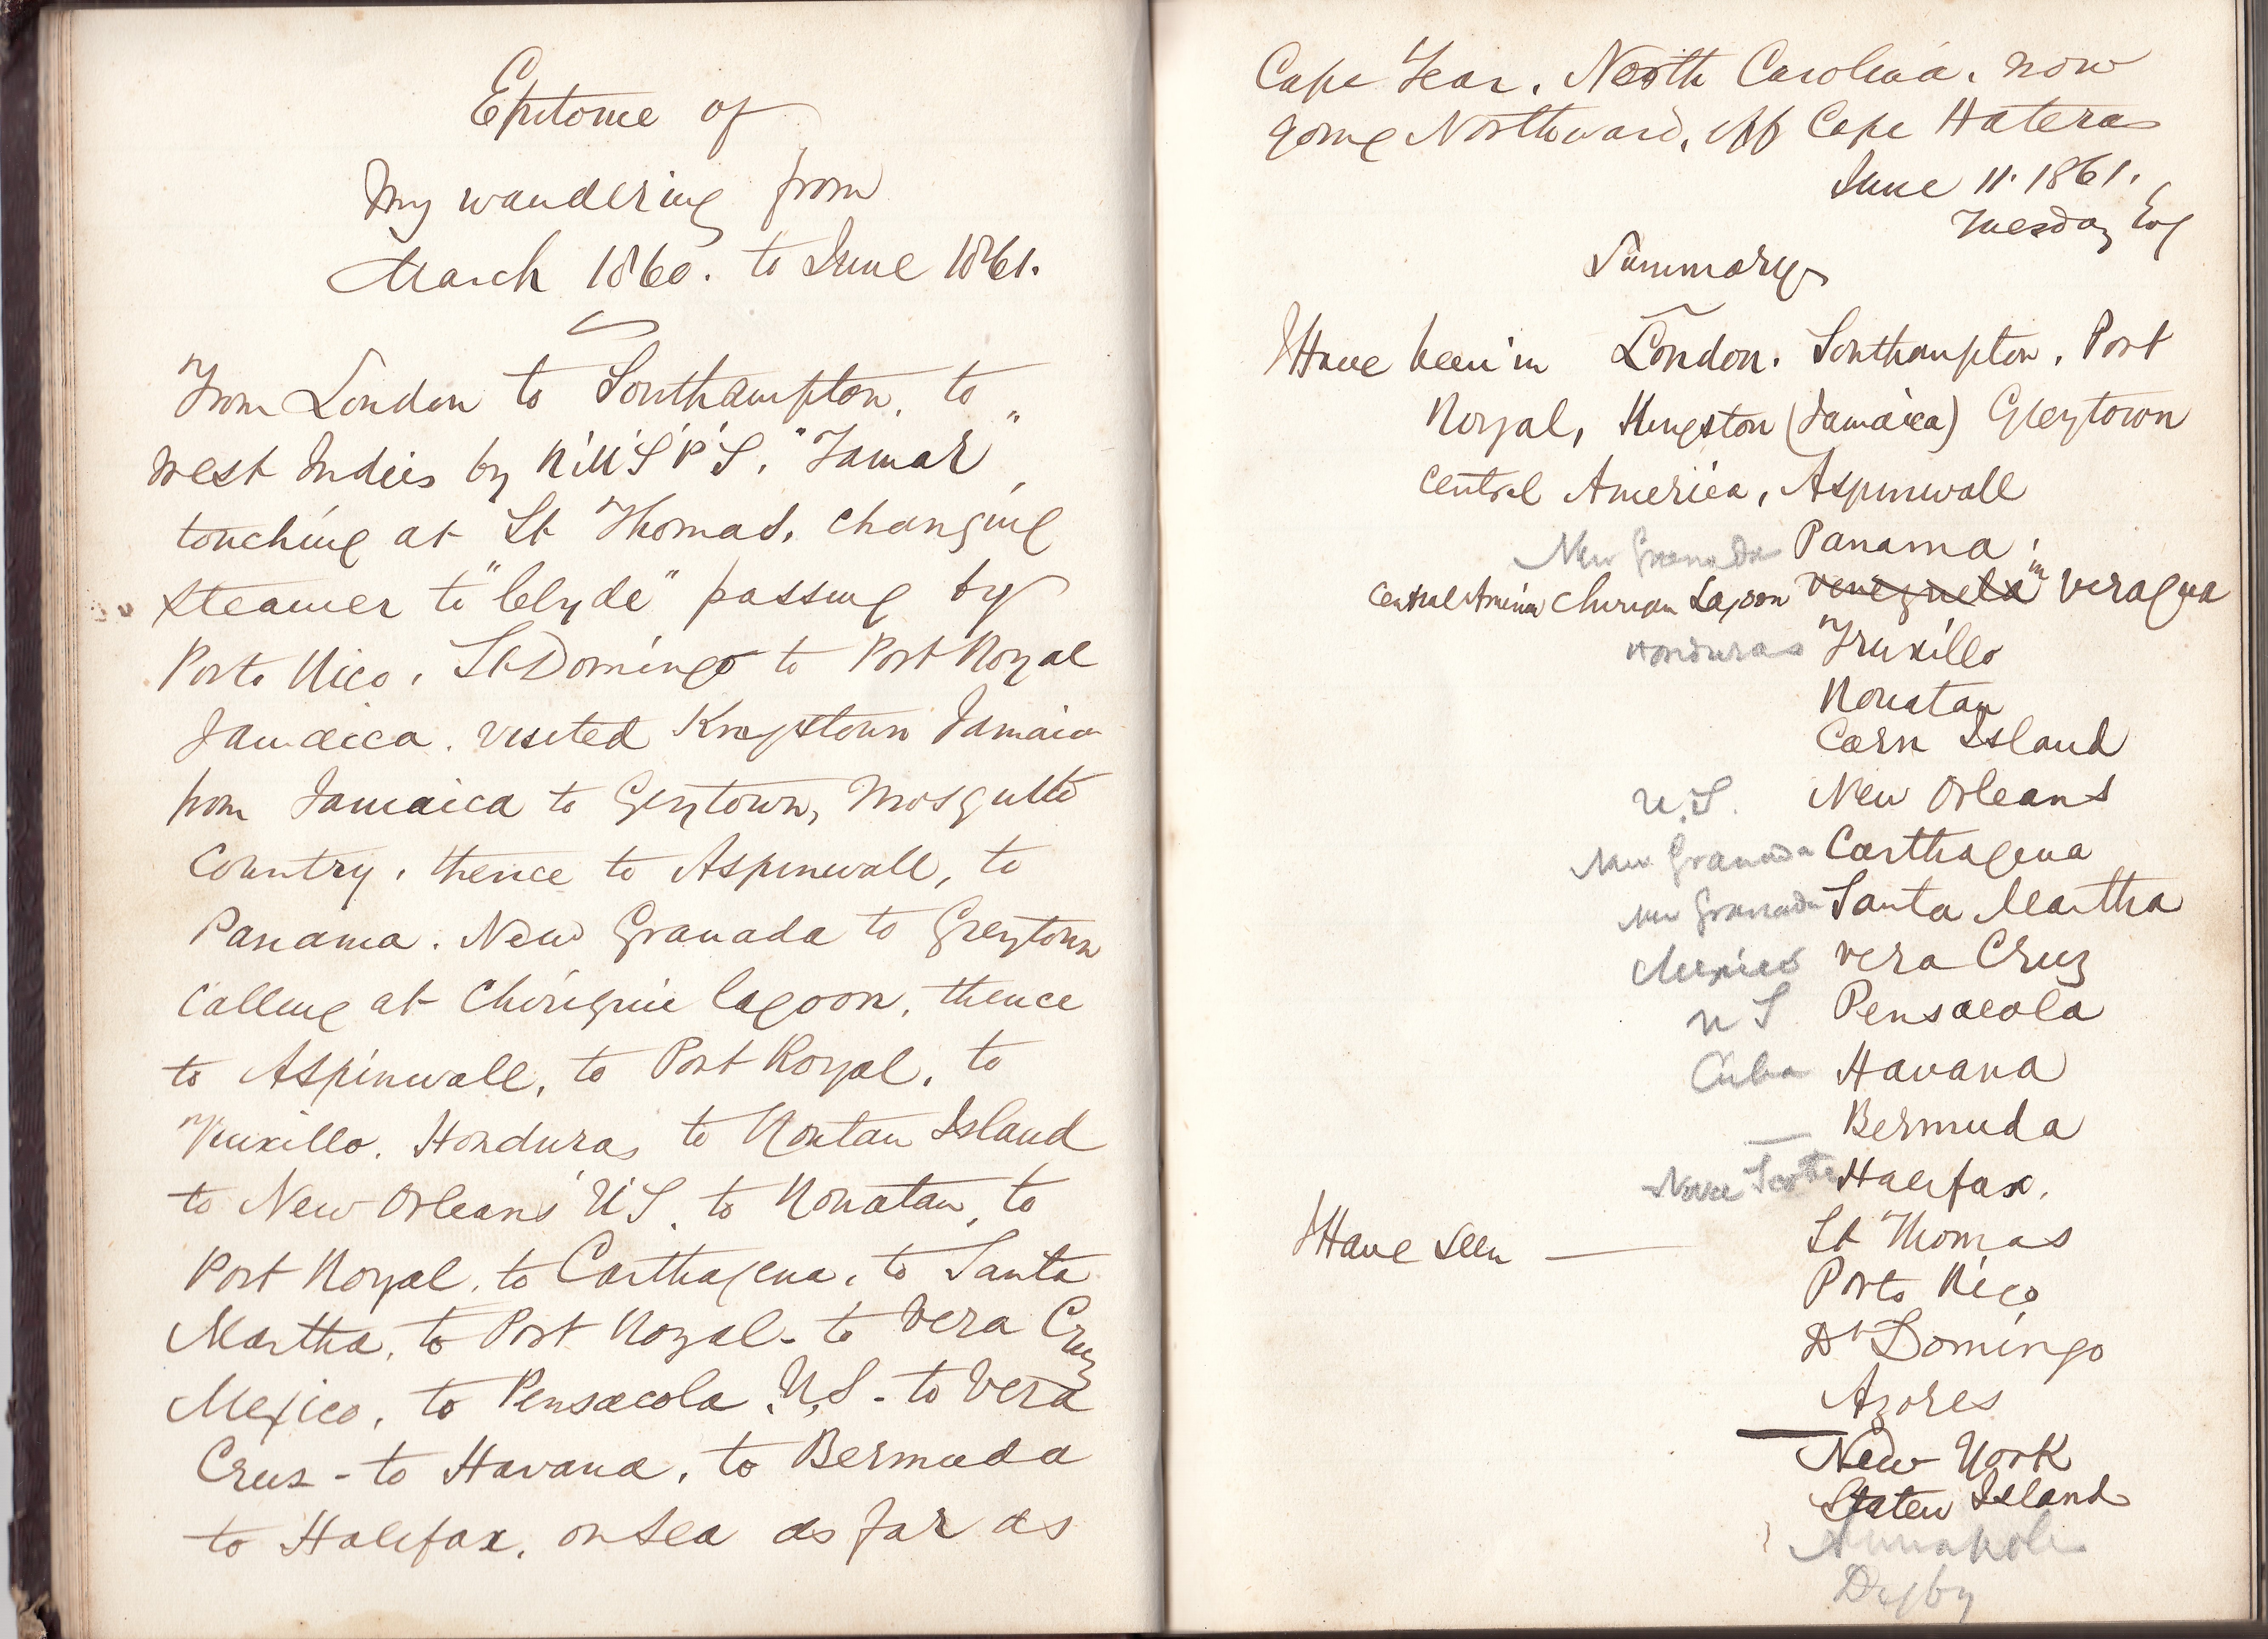 Epitome of
My wandering from
March 1860. to June 1861.
From London to Southampton, to
West Indies by R.M.S.P.S. "Tamar",
touching at St Thomas, changing
steamer to "Clyde" passing by
Porto Rico, St Domingo to Port Royal
Jamaica. visited Kingstown Jamaica
from Jamaica to Greytown, Mosquito
Country, thence to Aspinwall, to
Panama. New Granada to Greytown
calling at Chiriquie lagoon, thence
to Aspinwall, to Port Royal, to
Truxillo. Honduras to Roatan Island
to New Orleans U.S. to Rouatan, to
Port Royal, to Carthagena, to Santa
Martha, to Port Royal - to Vera Cruz
Mexico, to Pensacola U.S - to Vera
Crus - to Havana, to Bermuda
to Halifax, on sea as far as
Cape Fear, North Carolina, now
going Northward, off Cape Hateras
June 11. 1861.
Tuesday Evg
Summary
I Have been in London. Southampton, Port
Royal, Kingston (Jamaica) Greytown
Central America, Aspinwall
New Granada Panama.
Central America Chiriqui Lagoon Venezuela in Veragua
Honduras Truxillo
Rouatan
Corn Island
U.S. New Orleans
New Granada Carthagena
New Granada Santa Martha
Mexico Vera Cruz
U S Pensacola
Cuba Havana
Bermuda
Nova Scotia Halifax.
I Have seen — St Thomas
Porto Rico
St Domingo
Azores
New York
Staten Island
Annapolis
Digby